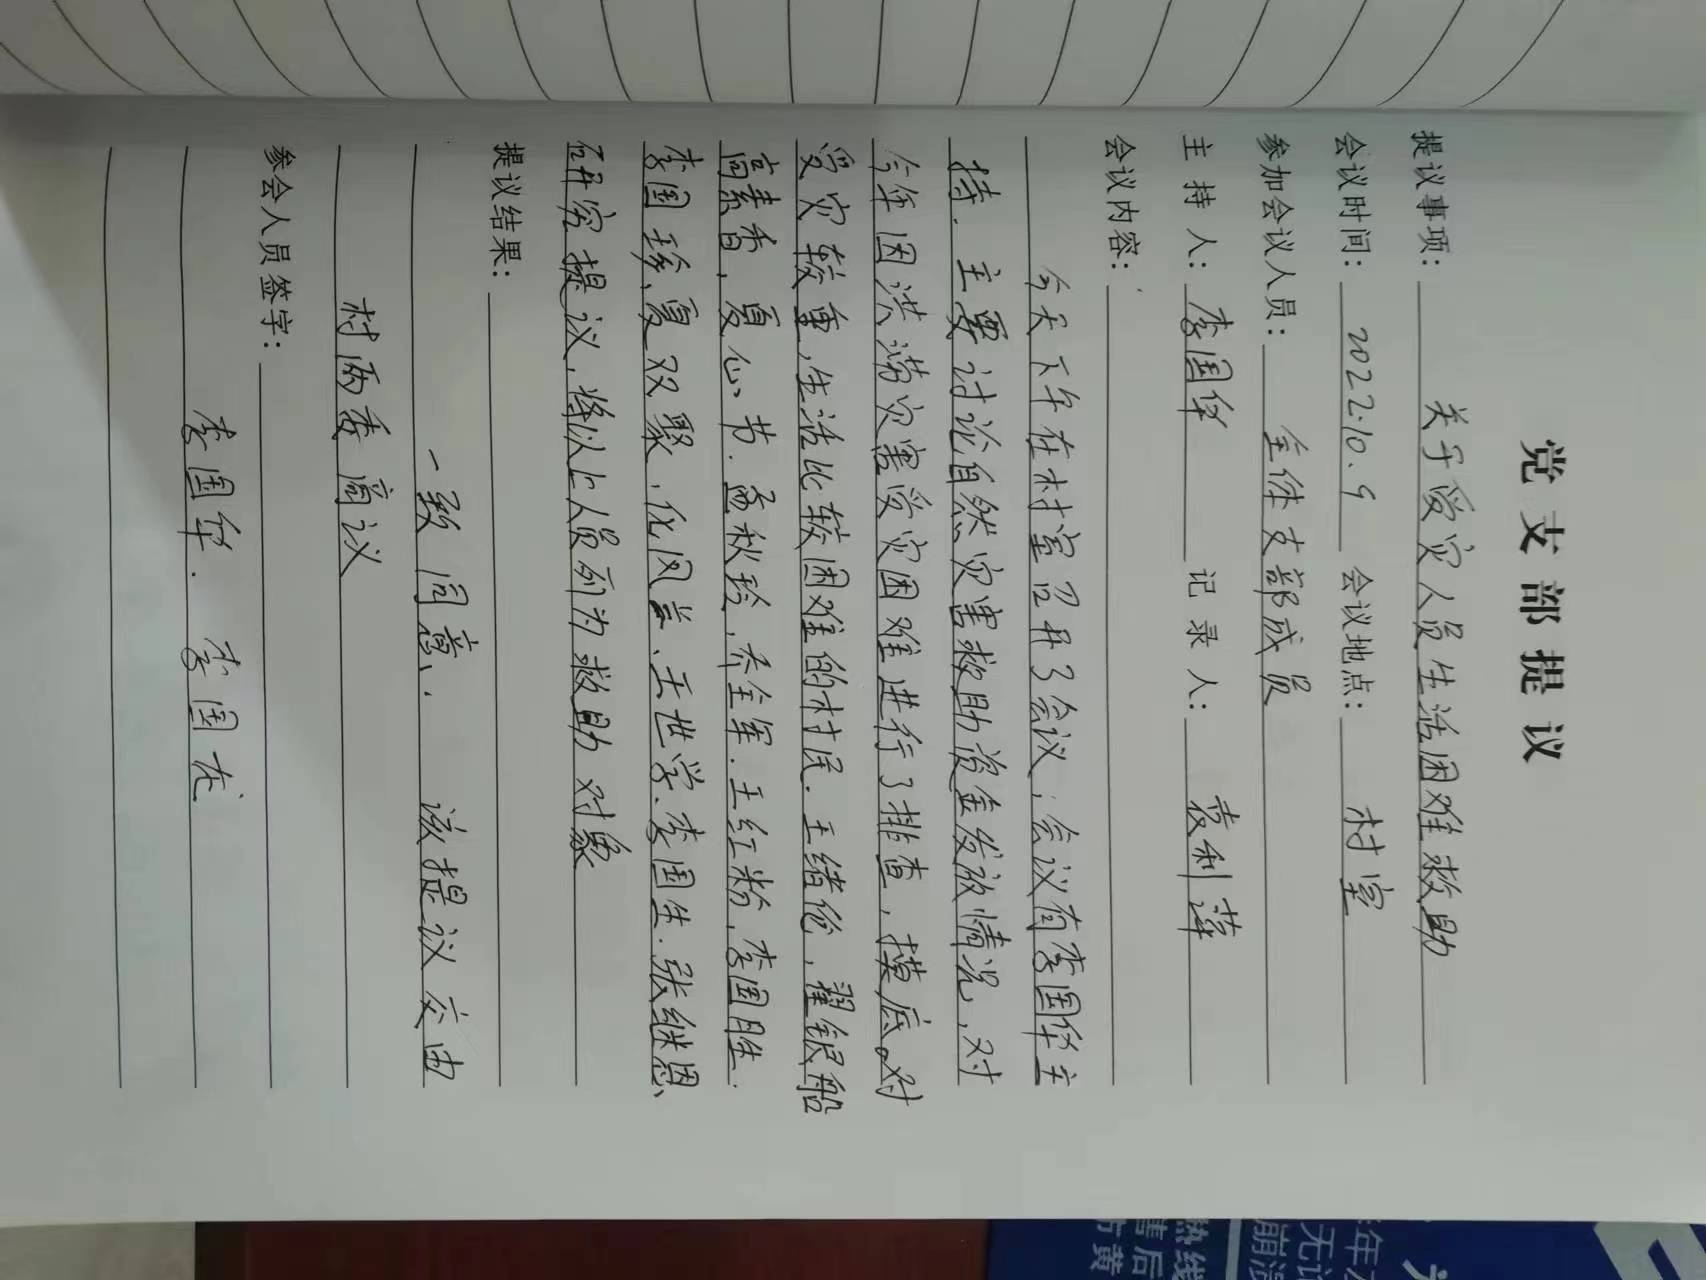 党支部提议
提议事项： 关于受灾人员生活困难救助
会议时间： 2022.10.9 会议地点： 村室
参加会议人员： 全体支部成员
主持人： 李国华 记录人： 袁利萍
会议内容：
今天下午在村室召开了会议，会议有李国华主
持. 主要讨论自然灾害救助资金发放情况，对
今年因洪涝灾害受灾困难进行了排查，摸底。对
受灾较重，生活比较困难的村民. 王绪伦，翟银船
高素香，夏仙节. 孟秋玲、乔全军. 王红粉，李国胜.
李国珍、夏双聚、化凤兰、王世学. 李国生. 张继恩、
研究提议，将以上人员列为救助对象
提议结果：
一致同意、. 该提议交由
村两委商议
参会人员签字：
李国华. 李国龙
热线
售后
年
无
崩
黄